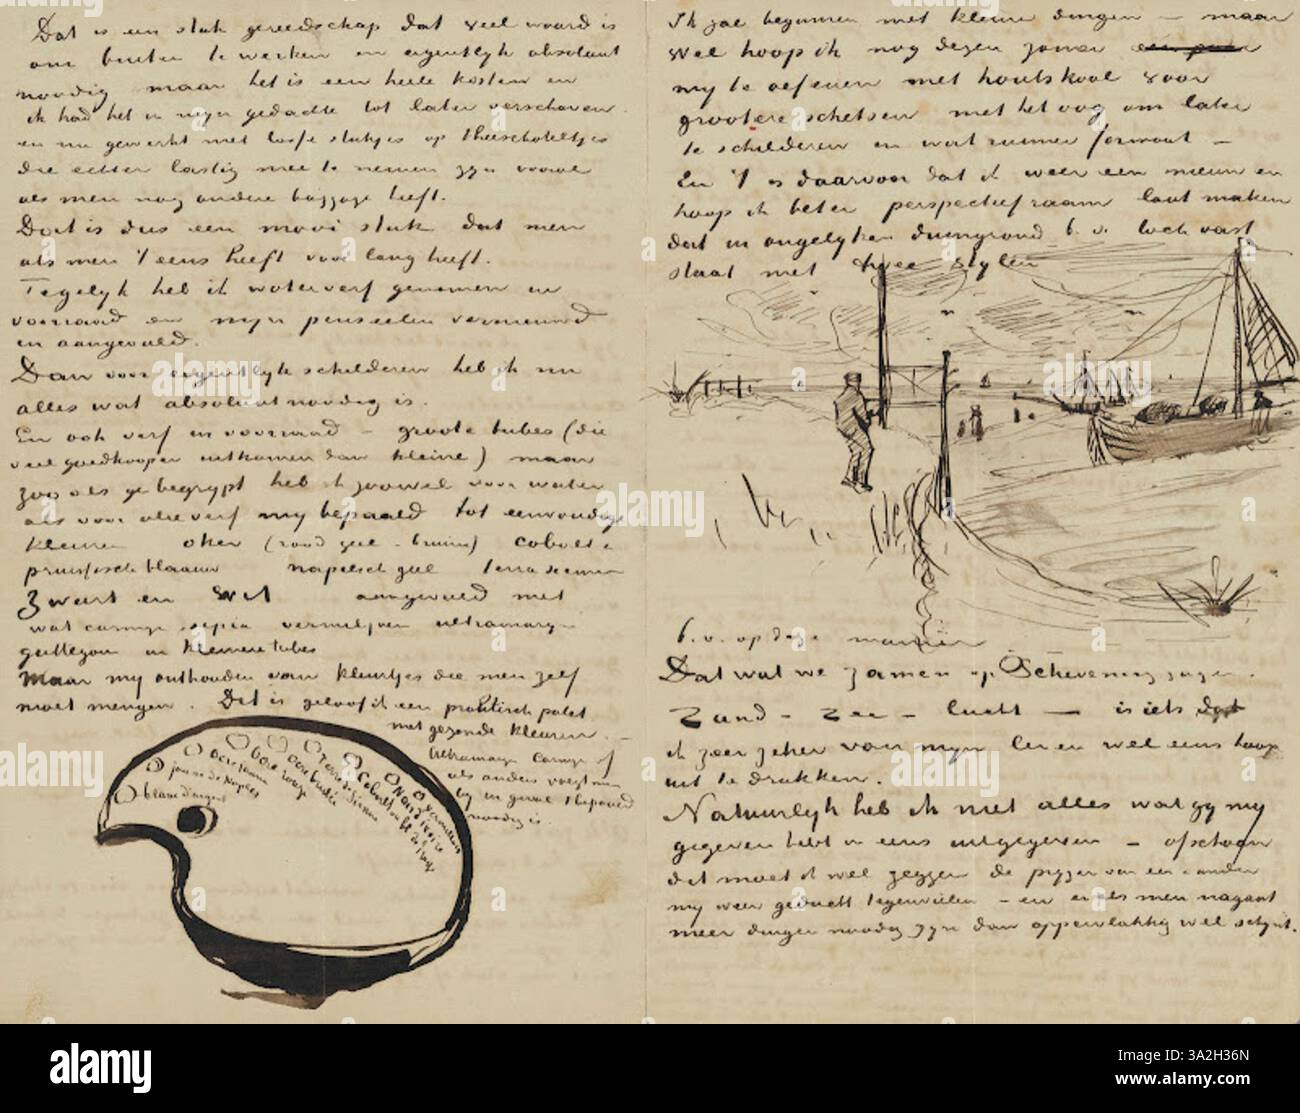 Dat is een stuk gereedschap dat veel waard is
om buiten te werken en eigentlyk absoluut
noodig maar het is een heele kosten en
ik had het in myn gedachte tot later verschoven
en nu gewerkt met losse stukjes op theeschoteltjes
die echter lastig mee te nemen zyn vooral
als men nog andere baggage heeft.
Dat is dus een mooi stuk dat men
als men 't eens heeft voor lang heeft.
Tegelyk heb ik waterverf genomen in
voorraad en myn penseelen vernieuwd
en aangevuld.
Dan voor eigentlyk schilderen heb ik nu
alles wat absoluut noodig is.
En ook verf in voorraad – groote tubes (die
veel goedkooper uitkomen dan kleine) maar
zoo als ge begrypt heb ik zoowel voor water
als voor olieverf my bepaald tot eenvoudige
kleuren oker (rood geel – bruin) cobalt &
pruissisch blaauw napelsch geel terra sienna
Zwart en Wit aangevuld met
wat carmyn sepia vermiljoen ultramaryn
guttegom in kleinere tubes
Maar my onthouden van kleurtjes die men zelf
moet mengen. Dit is geloof ik een praktisch palet
met gezonde kleuren. –
Ultramaryn Carmyn of
als anders voegt men
by in geval 't bepaald
noodig is.
blanc d'argent
jaune de Naples
Ocre jaune
Ocre rouge
Ocre brulée
Terre de Sienne
Cobalt
Noir d'ivoire
vermillon
Ik zal beginnen met kleine dingen – maar
Wel hoop ik nog dezen zomer
my te oefenen met houtskool voor
grootere schetsen met het oog om later
te schilderen in wat ruimer formaat –
En 't is daarvoor dat ik weer een nieuw en
hoop ik beter perspectiefraam laat maken
dat in ongelyken duingrond b.v. toch vast
staat met twee stylen
b.v. op deze manier
Dat wat we zamen op Scheveningen zagen.
Zand – Zee – lucht – is iets dat
ik zeer zeker van myn leven wel eens hoop
uit te drukken.
Natuurlyk heb ik niet alles wat gy my
gegeven hebt in eens uitgegeven – ofschoon
dit moet ik wel zeggen de pryzen van een & ander
my weer geducht tegenvielen – en er als men nagaat
meer dingen noodig zyn dan oppervlakkig wel schynt.
alamy
Image ID: 3A2H36N
www.alamy.com